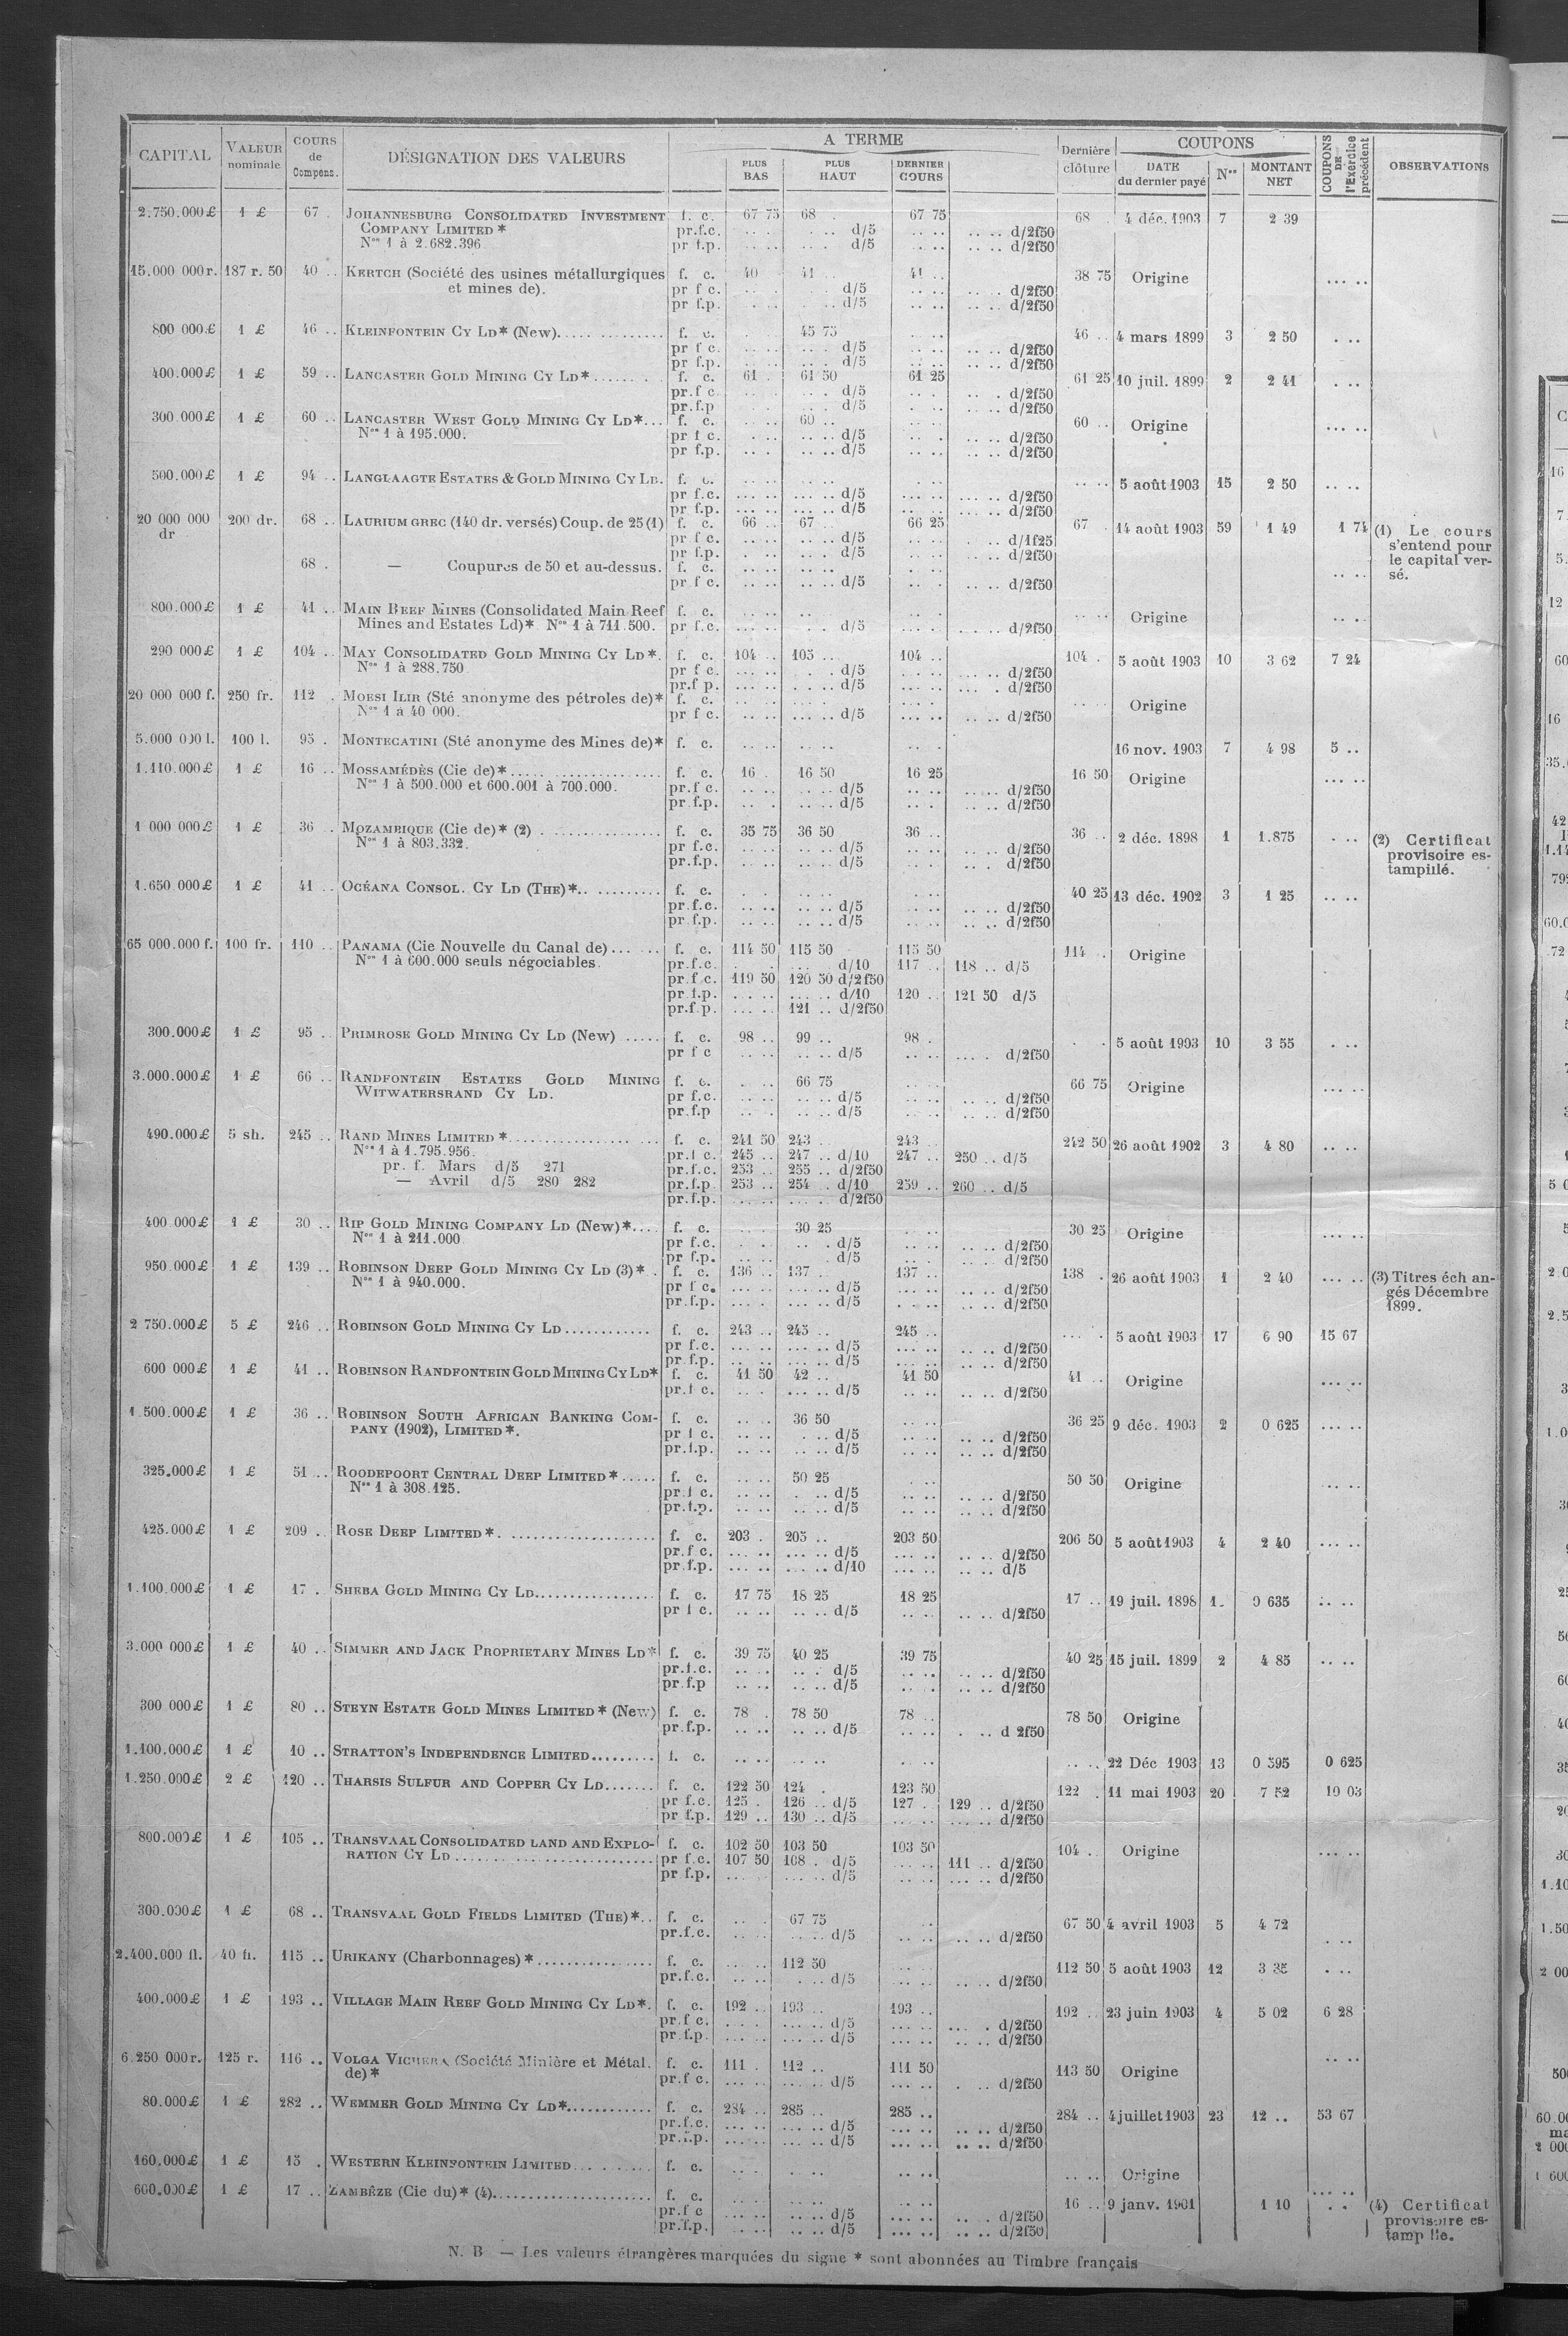 CAPITAL | VALEUR nominale | COURS de Compens. | DÉSIGNATION DES VALEURS | A TERME | PLUS BAS | PLUS HAUT | DERNIER COURS | Dernière clôture | COUPONS | DATE du dernier payé | Nos | MONTANT NET | COUPONS DE l'Exercice précédent | OBSERVATIONS
2.750.000 £ 1 £ 67 . JOHANNESBURG CONSOLIDATED INVESTMENT f. c. 67 75 68 . 67 75 68 . 4 déc. 1903 7 2 39
COMPANY LIMITED * pr.f.c. d/5 d/2f50
Nos 1 à 2.682.396 pr f.p. d/5 d/2f50
15.000 000 r. 187 r. 50 40 .. KERTCH (Société des usines métallurgiques f. c. 40 41 .. 41 .. 38 75 Origine
et mines de). pr f c. d/5 d/2f50
pr f.p. d/5 d/2f50
800 000 £ 1 £ 46 .. KLEINFONTEIN CY LD* (New) f. c. 45 75 46 .. 4 mars 1899 3 2 50
pr f c. d/5 d/2f50
pr f.p. d/5 d/2f50
400.000 £ 1 £ 59 .. LANCASTER GOLD MINING CY LD* f. c. 61 . 61 50 61 25 61 25 10 juil. 1899 2 2 41
pr.f c. d/5 d/2f50
pr.f.p d/5 d/2f50
300.000 £ 1 £ 60 .. LANCASTER WEST GOLD MINING CY LD* f. c. 60 .. 60 .. Origine
Nos 1 à 195.000. pr f c. d/5 d/2f50
pr f.p. d/5 d/2f50
500.000 £ 1 £ 94 .. LANGLAAGTE ESTATES & GOLD MINING CY LD. f. c. 5 août 1903 15 2 50
pr f.c. d/5 d/2f50
pr f.p. d/5 d/2f50
20 000 000 dr 200 dr. 68 .. LAURIUM GREC (140 dr. versés) Coup. de 25 (1) f. c. 66 .. 67 .. 66 25 67 . 14 août 1903 59 1 49 1 74 (1) Le cours s'entend pour le capital versé.
pr f c. d/5 d/1f25
pr f.p. d/5 d/2f50
68 . — Coupures de 50 et au-dessus. f. c.
pr f c. d/5 d/2f50
800.000 £ 1 £ 41 .. MAIN REEF MINES (Consolidated Main Reef f. c. Origine
Mines and Estates Ld)* Nos 1 à 711.500. pr f.c. d/5 d/2f50
290 000 £ 1 £ 104 .. MAY CONSOLIDATED GOLD MINING CY LD*. f. c. 104 .. 105 .. 104 .. 104 . 5 août 1903 10 3 62 7 24
Nos 1 à 288.750 pr f c. d/5 d/2f50
pr.f p. d/5 d/2f50
20 000 000 f. 250 fr. 112 . MOESI ILIR (Sté anonyme des pétroles de)* f. c. Origine
Nos 1 à 40 000. pr f c. d/5 d/2f50
5.000 000 l. 100 l. 95 . MONTECATINI (Sté anonyme des Mines de)* f. c. 16 nov. 1903 7 4 98 5 ..
1.110.000 £ 1 £ 16 .. MOSSAMÉDÈS (Cie de)* f. c. 16 . 16 50 16 25 16 50 Origine
Nos 1 à 500.000 et 600.001 à 700.000. pr.f c. d/5 d/2f50
pr f.p. d/5 d/2f50
1 000 000 £ 1 £ 36 .. MOZAMBIQUE (Cie de)* (2) f. c. 35 75 36 50 36 .. 36 .. 2 déc. 1898 1 1.875 (2) Certificat provisoire estampillé.
Nos 1 à 803.332. pr f.c. d/5 d/2f50
pr.f.p. d/5 d/2f50
1.650 000 £ 1 £ 41 .. OCÉANA CONSOL. CY LD (THE)* f. c. 40 25 13 déc. 1902 3 1 25
pr.f.c. d/5 d/2f50
pr.f.p. d/5 d/2f50
65 000.000 f. 100 fr. 110 .. PANAMA (Cie Nouvelle du Canal de) f. c. 114 50 115 50 115 50 114 . Origine
Nos 1 à 600.000 seuls négociables. pr.f.c. d/10 117 .. 118 .. d/5
pr.f c. 119 50 120 50 d/2f50
pr f.p. d/10 120 .. 121 50 d/5
pr.f p. 121 .. d/2f50
300.000 £ 1 £ 95 .. PRIMROSE GOLD MINING CY LD (New) f. c. 98 .. 99 .. 98 . 5 août 1903 10 3 55
pr f c d/5 d/2f50
3.000.000 £ 1 £ 66 .. RANDFONTEIN ESTATES GOLD MINING f. c. 66 75 66 75 Origine
WITWATERSRAND CY LD. pr f.c. d/5 d/2f50
pr.f.p d/5 d/2f50
490.000 £ 5 sh. 245 .. RAND MINES LIMITED * f. c. 241 50 243 .. 243 .. 242 50 26 août 1902 3 4 80
Nos 1 à 1.795.956. pr.f c. 245 .. 247 .. d/10 247 .. 250 .. d/5
pr. f. Mars d/5 271 pr.f.c. 253 .. 255 .. d/2f50
— Avril d/5 280 282 pr.f.p 253 .. 254 . d/10 259 .. 260 .. d/5
pr.f.p. d/2f50
400 000 £ 1 £ 30 .. RIP GOLD MINING COMPANY LD (New)* f. c. 30 25 30 25 Origine
Nos 1 à 211.000 pr f.c. d/5 d/2f50
pr f.p. d/5 d/2f50
950.000 £ 1 £ 139 .. ROBINSON DEEP GOLD MINING CY LD (3)* f. c. 136 .. 137 .. 137 .. 138 . 26 août 1903 1 2 40 (3) Titres échangés Décembre 1899.
Nos 1 à 940.000. pr f c. d/5 d/2f50
pr.f.p. d/5 d/2f50
2 750.000 £ 5 £ 246 .. ROBINSON GOLD MINING CY LD f. c. 243 .. 245 .. 245 .. 5 août 1903 17 6 90 15 67
pr f.c. d/5 d/2f50
pr.f.p. d/5 d/2f50
600 000 £ 1 £ 41 .. ROBINSON RANDFONTEIN GOLD MINING CY LD* f. c. 41 50 42 .. 41 50 41 .. Origine
pr.f c. d/5 d/2f50
1 500.000 £ 1 £ 36 .. ROBINSON SOUTH AFRICAN BANKING COM- f. c. 36 50 36 25 9 déc. 1903 2 0 625
PANY (1902), LIMITED*. pr f c. d/5 d/2f50
pr.f.p. d/5 d/2f50
325.000 £ 1 £ 51 .. ROODEPOORT CENTRAL DEEP LIMITED* f. c. 50 25 50 50 Origine
Nos 1 à 308.125. pr.f c. d/5 d/2f50
pr.f.p. d/5 d/2f50
425.000 £ 1 £ 209 .. ROSE DEEP LIMITED* f. c. 203 . 205 .. 203 50 206 50 5 août 1903 4 2 40
pr.f c. d/5 d/2f50
pr f.p. d/10 d/5
1.100.000 £ 1 £ 17 . SHEBA GOLD MINING CY LD f. c. 17 75 18 25 18 25 17 .. 19 juil. 1898 1 0 635
pr f c. d/5 d/2f50
3.000 000 £ 1 £ 40 .. SIMMER AND JACK PROPRIETARY MINES LD* f. c. 39 75 40 25 39 75 40 25 15 juil. 1899 2 4 85
pr.f.c. d/5 d/2f50
pr f.p d/5 d/2f50
300 000 £ 1 £ 80 .. STEYN ESTATE GOLD MINES LIMITED* (New) f. c. 78 . 78 50 78 .. 78 50 Origine
pr.f.p. d/5 d 2f50
1.100.000 £ 1 £ 10 .. STRATTON'S INDEPENDENCE LIMITED f. c. 22 Déc 1903 13 0 595 0 625
1.250.000 £ 2 £ 120 .. THARSIS SULFUR AND COPPER CY LD f. c. 122 50 124 . 123 50 122 . 11 mai 1903 20 7 52 19 03
pr f.c. 125 . 126 .. d/5 127 . 129 .. d/2f50
pr f.p. 129 .. 130 .. d/5 d/2f50
800.000 £ 1 £ 105 .. TRANSVAAL CONSOLIDATED LAND AND EXPLO- f. c. 102 50 103 50 103 50 104 . Origine
RATION CY LD pr f.c. 107 50 108 . d/5 111 .. d/2f50
pr f.p. d/5 d/2f50
300.000 £ 1 £ 68 .. TRANSVAAL GOLD FIELDS LIMITED (THE)* f. c. 67 75 67 50 4 avril 1903 5 4 72
pr.f.c. d/5 d/2f50
2.400.000 fl. 40 fl. 115 .. URIKANY (Charbonnages)* f. c. 112 50 112 50 5 août 1903 12 3 35
pr.f.c. d/5 d/2f50
400.000 £ 1 £ 193 .. VILLAGE MAIN REEF GOLD MINING CY LD*. f. c. 192 .. 193 .. 193 .. 192 .. 23 juin 1903 4 5 02 6 28
pr.f c. d/5 d/2f50
pr f.p. d/5 d/2f50
6 250 000 r. 125 r. 116 .. VOLGA VICHERA (Société Minière et Métal. f. c. 111 . 112 .. 111 50 113 50 Origine
de)* pr.f c. d/5 d/2f50
80.000 £ 1 £ 282 .. WEMMER GOLD MINING CY LD* f. c. 284 .. 285 .. 285 .. 284 .. 4 juillet 1903 23 12 .. 53 67
pr.f.c. d/5 d/2f50
pr.f.p. d/5 d/2f50
160.000 £ 1 £ 15 . WESTERN KLEINFONTEIN LIMITED f. c. Origine
600.000 £ 1 £ 17 .. ZAMBÈZE (Cie du)* (4) f. c. 16 .. 9 janv. 1901 1 10 (4) Certificat provisoire estampille.
pr.f c d/5 d/2f50
pr.f.p. d/5 d/2f50
N. B — Les valeurs étrangères marquées du signe * sont abonnées au Timbre français